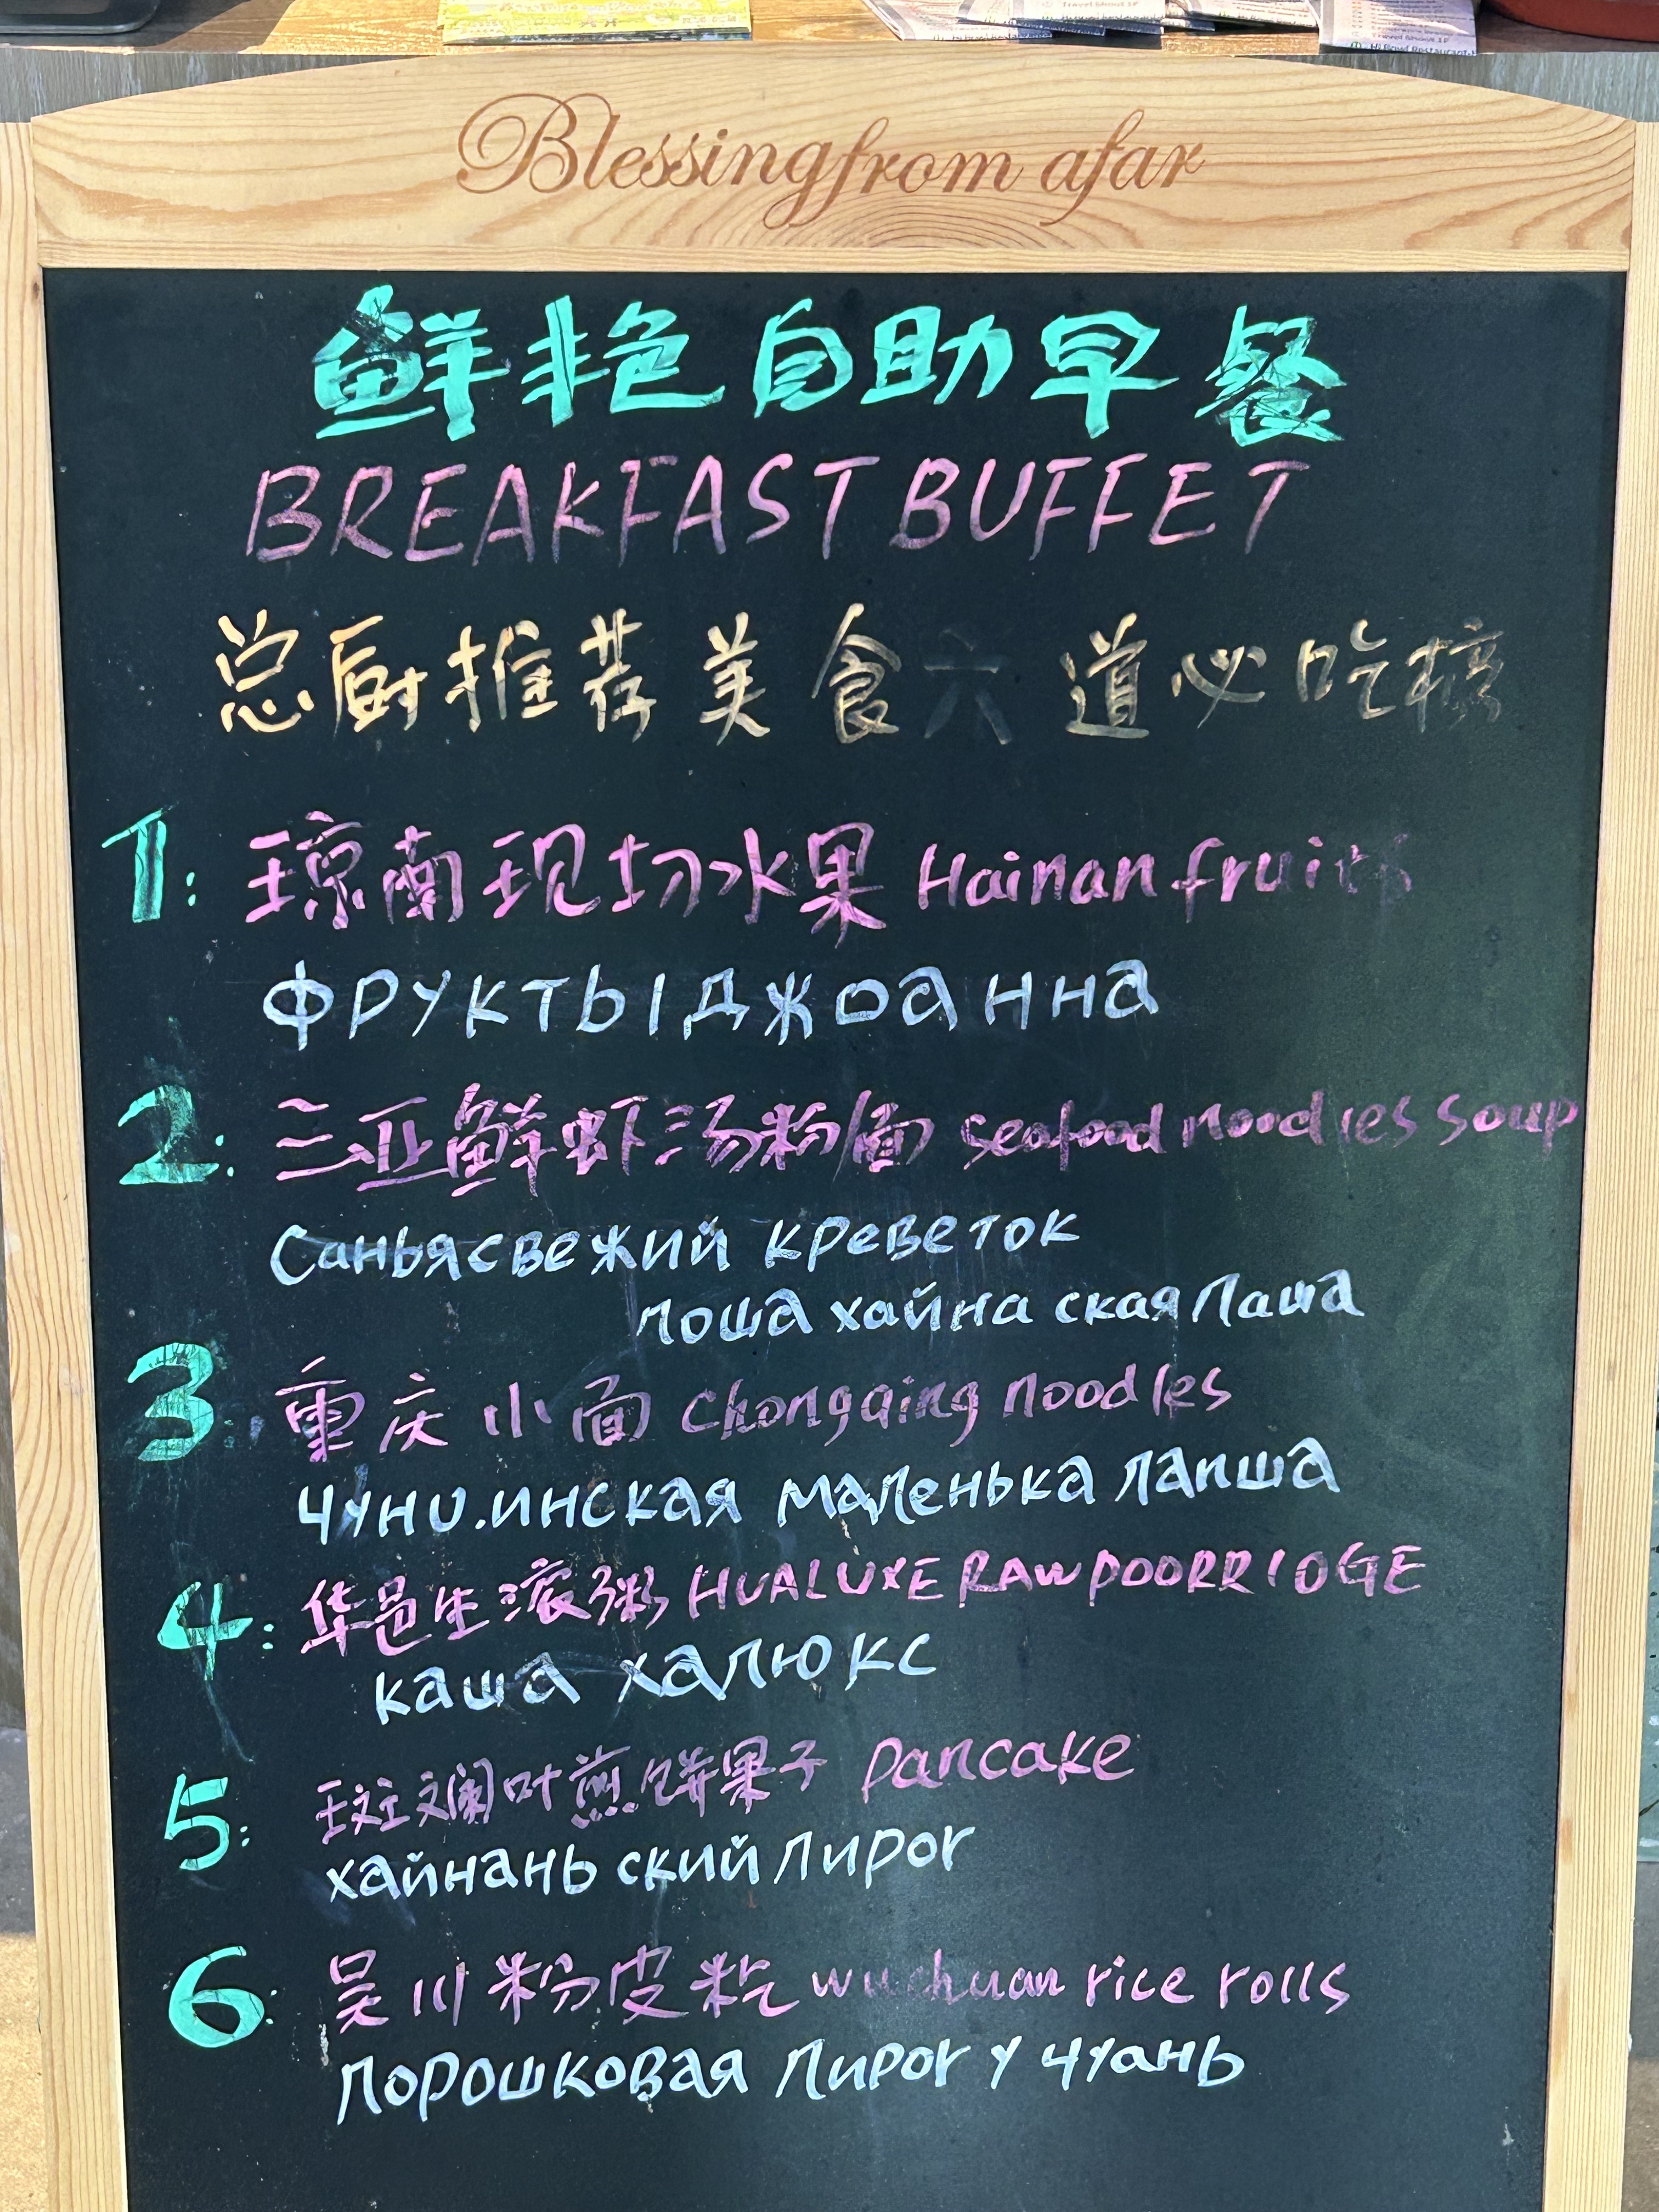 Blessing from afar
鲜艳自助早餐
BREAKFAST BUFFET
总厨推荐美食六道必吃榜
1: 琼南现切水果 Hainan fruits
ФРУКТЫ ДЖОАННА
2: 三亚鲜虾汤粉/面 seafood noodles soup
Санья свежий креветок
лоша хайна ская лаша
3: 重庆小面 Chongqing noodles
Чуни.инская маленька лапша
4: 华邑生滚粥 HUALUXE RAW POORRIDGE
каша халюкс
5: 班斓叶煎饼果子 Pancake
хайнань ский пирог
6: 吴川粉皮籺 wuchuan rice rolls
порошковая пирог у чуань